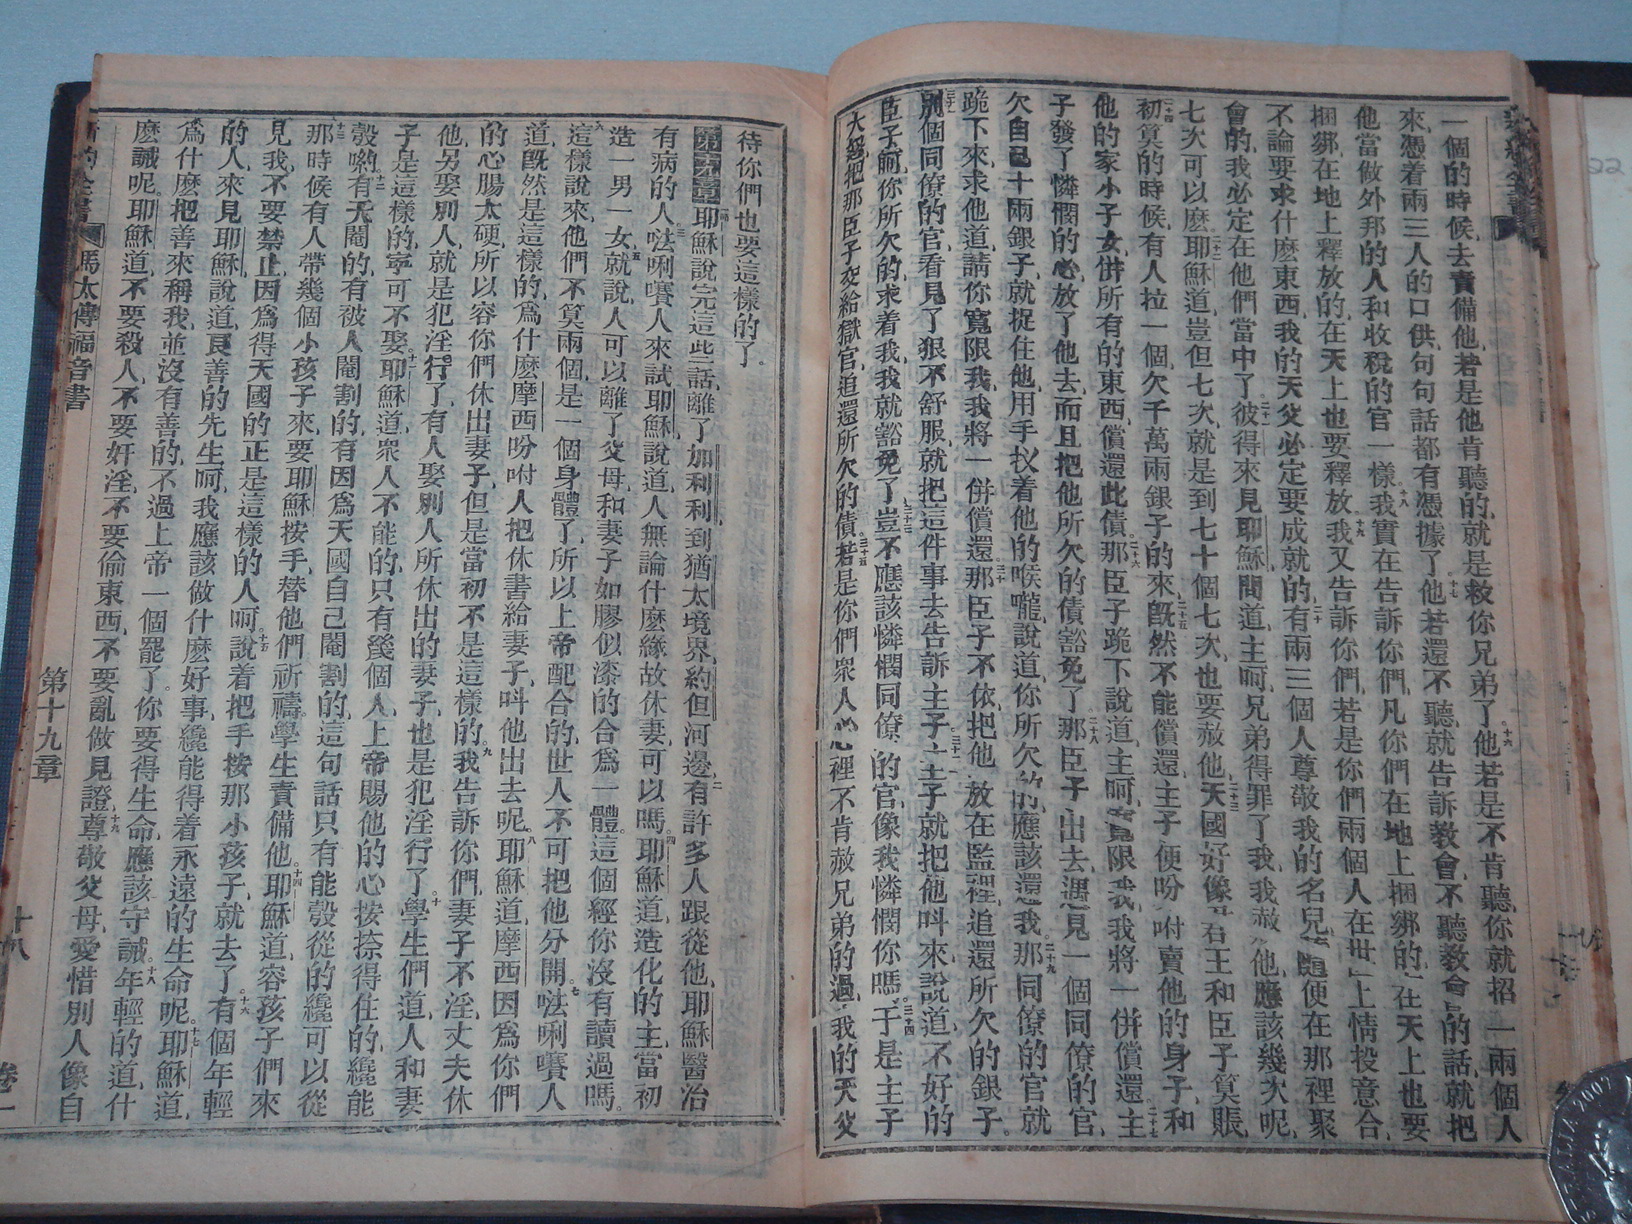 一個的時候、去責備他、若是他肯聽的、就是救你兄弟了。十六他若是不肯聽、你就招一兩個人
來、憑着兩三人的口供、句句話都有憑據了。十七他若還不聽、就告訴教會、不聽教會的話、就把
他當做外邦的人和收稅的官一樣。十八我實在告訴你們、凡你們在地上捆綁的、在天上也要
捆綁、在地上釋放的、在天上也要釋放。十九我又告訴你們、若是你們兩個人在世上情投意合、
不論要求什麽東西、我的天父必定要成就的。二十有兩三個人尊敬我的名兒、隨便在那裡聚
會的、我必定在他們當中了。二十一彼得來見耶穌、問道、主呵、兄弟得罪了我、我赦他、應該幾次呢、
七次可以麽。二十二耶穌道、豈但七次、就是到七十個七次、也要赦他。二十三天國好像君王和臣子算賬、
初算的時候、二十四有人拉一個欠千萬兩銀子的來。二十五旣然不能償還、主子便吩咐賣他的身子、和
他的家小子女、併所有的東西、償還此債。二十六那臣子跪下說道、主呵、寬限我、我將一併償還。二十七主
子發了憐憫的心、放了他去、而且把他所欠的債豁免了。二十八那臣子出去、遇見一個同僚的官、
欠自己十兩銀子、就捉住他、用手扠着他的喉嚨、說道、你所欠的、應該還我。二十九那同僚的官、就
跪下來、求他道、請你寬限我、我將一併償還。三十那臣子不依、把他放在監裡、追還所欠的銀子。
三十一別個同僚的官、看見了狠不舒服、就把這件事去告訴主子。三十二主子就把他呌來、說道、不好的
臣子呵、你所欠的、求着我、我就豁免了。三十三豈不應該憐憫同僚的官、像我憐憫你嗎。三十四于是主子
大怒、把那臣子交給獄官、追還所欠的債。三十五若是你們衆人心裡不肯赦兄弟的過、我的天父
待你們也要這樣的了。
第十九章 耶穌說完這些話、離了加利利、到猶太境界、約但河邊。二有許多人跟從他、耶穌醫治
有病的人。三𠵽唎賽人來試耶穌、說道、人無論什麽緣故休妻、可以嗎。四耶穌道、造化的主、當初
造一男一女、五就說、人可以離了父母、和妻子如膠似漆的合爲一體。這個經你沒有讀過嗎。
六這樣說來、他們不算兩個、是一個身體了、所以上帝配合的、世人不可把他分開。七𠵽唎賽人
道、旣然是這樣的、爲什麽摩西吩咐人把休書給妻子、呌他出去呢。八耶穌道、摩西因爲你們
的心腸太硬、所以容你們休出妻子、但是當初不是這樣的。九我告訴你們、妻子不淫、丈夫休
他、另娶別人、就是犯淫行了、有人娶別人所休出的妻子、也是犯淫行了。十學生們道、人和妻
子是這樣的、寧可不娶。十一耶穌道、衆人不能的、只有幾個人、上帝賜他的心、按捺得住的、纔能
彀喲。十二有天閹的、有被人閹割的、有因爲天國自己閹割的、這句話只有能彀從的、纔可以從。
十三那時候有人帶幾個小孩子來、要耶穌按手、替他們祈禱、學生責備他。十四耶穌道、容孩子們來
見我、不要禁止、因爲得天國的、正是這樣的人呵。十五說着把手按那小孩子、就去了。十六有個年輕
的人、來見耶穌、說道、良善的先生呵、我應該做什麽好事、纔能得着永遠的生命呢。十七耶穌道、
爲什麽把善來稱我、並沒有善的、不過上帝一個罷了。你要得生命、應該守誡。十八年輕的道、什
麽誡呢。耶穌道、不要殺人、不要奸淫、不要偷東西、不要亂做見證。十九尊敬父母、愛惜別人像自
馬太傳福音書 第十九章 十八 卷一